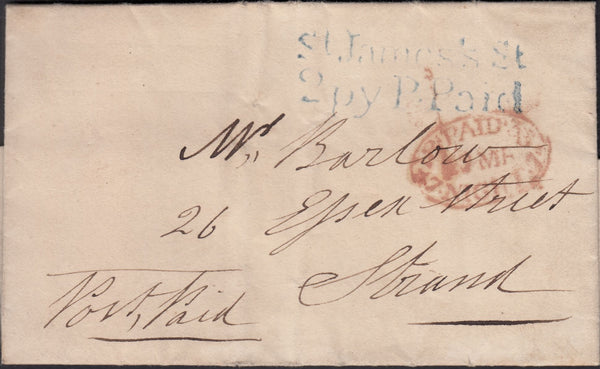 St James's St
2py P. Paid
PAID
MR
7. NIGHT. 7
Mr. Barlow
26 Essex Street
Strand
Post Paid